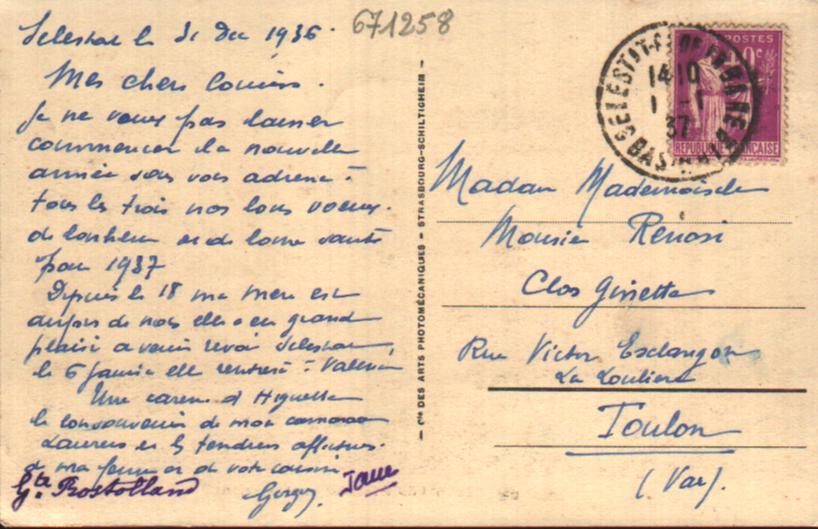 671258
Selestat le 31 Dec 1936.
Mes chers cousins.
Je ne veux pas laisser
commencer la nouvelle
année sans vous adresser
tous les trois nos bons voeux
de bonheur et de bonne santé
pour 1937
Depuis le 18 ma mere est
auprès de nous elle a eu grand
plaisir a venir revoir Selestat,
le 6 janvier elle rentrera à Valence
Une caresse d'Huguette
le bon souvenir de mon
et les tendres affections
de ma femme et de votre cousin
Georges
Jane
Rostolland
Cie DES ARTS PHOTOMÉCANIQUES - STRASBOURG-SCHILTIGHEIM
POSTES
REPUBLIQUE FRANÇAISE
SELESTAT-GARE
BAS-RHIN
14 10
1 -1
37
Madame Mademoiselle
Monsieur Renosi
Clos Ginette
Rue Victor Esclangon
La Loubière
Toulon
(Var).